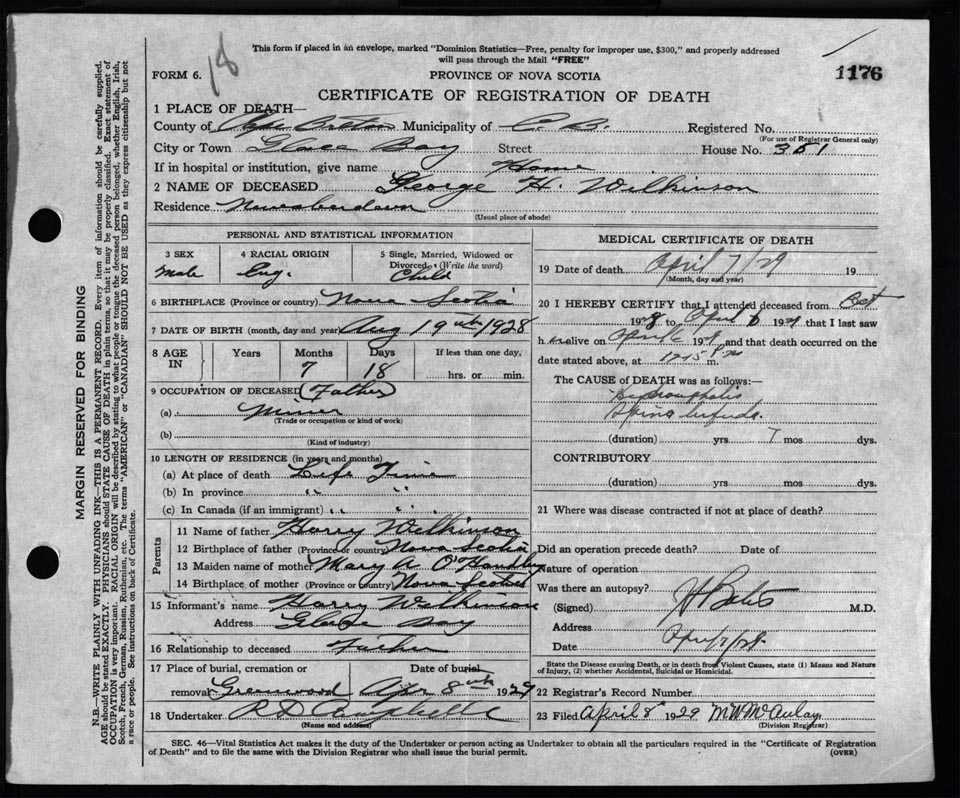 This form if placed in an envelope, marked "Dominion Statistics—Free, penalty for improper use, $300," and properly addressed
will pass through the Mail "FREE"
18
FORM 6.
PROVINCE OF NOVA SCOTIA
1176
CERTIFICATE OF REGISTRATION OF DEATH
1 PLACE OF DEATH—
County of Cape Breton Municipality of C. B. Registered No.
(For use of Registrar General only)
City or Town Glace Bay Street House No. 351
If in hospital or institution, give name Home
2 NAME OF DECEASED George H. Wilkinson
Residence Newaberdeen
(Usual place of abode)
PERSONAL AND STATISTICAL INFORMATION
3 SEX 4 RACIAL ORIGIN 5 Single, Married, Widowed or
Divorced. (Write the word)
Male Eng. Child
6 BIRTHPLACE (Province or country) Nova Scotia
7 DATE OF BIRTH (month, day and year) Aug 19th 1928
8 AGE IN Years Months Days If less than one day,
7 18 hrs. or min.
9 OCCUPATION OF DECEASED (Father)
(a) Miner
(Trade or occupation or kind of work)
(b)
(Kind of industry)
10 LENGTH OF RESIDENCE (in years and months)
(a) At place of death Life Time
(b) In province " "
(c) In Canada (if an immigrant) " "
Parents
11 Name of father Harry Wilkinson
12 Birthplace of father (Province or country) Nova Scotia
13 Maiden name of mother Mary A O'Handley
14 Birthplace of mother (Province or country) Nova Scotia
15 Informant's name Harry Wilkinson
Address Glace Bay
16 Relationship to deceased Father
17 Place of burial, cremation or Date of burial
removal Greenwood Apr 8th 1929
18 Undertaker R D Campbell
(Name and address)
MEDICAL CERTIFICATE OF DEATH
19 Date of death April 7/29 19
(Month, day and year)
20 I HEREBY CERTIFY that I attended deceased from Oct
1928 to April 6 1929 that I last saw
h alive on April 6 1929, and that death occurred on the
date stated above, at 1245 P.m.
The CAUSE OF DEATH was as follows:—
Spina bifida.
(duration) yrs 7 mos dys.
CONTRIBUTORY
(duration) yrs mos dys.
21 Where was disease contracted if not at place of death?
Did an operation precede death? Date of
Nature of operation
Was there an autopsy?
(Signed) M.D.
Address
Date April/7/29.
State the Disease causing Death, or in death from Violent Causes, state (1) Means and Nature
of Injury, (2) whether Accidental, Suicidal or Homicidal.
22 Registrar's Record Number
23 Filed April 8th 1929 M W McAulay
(Division Registrar)
SEC. 46—Vital Statistics Act makes it the duty of the Undertaker or person acting as Undertaker to obtain all the particulars required in the "Certificate of Registration
of Death" and to file the same with the Division Registrar who shall issue the burial permit.
(OVER)
MARGIN RESERVED FOR BINDING
N.B.—WRITE PLAINLY WITH UNFADING INK—THIS IS A PERMANENT RECORD. Every item of information should be carefully supplied.
AGE should be stated EXACTLY. PHYSICIANS should STATE CAUSE OF DEATH in plain terms, so that it may be properly classified. Exact statement of
OCCUPATION is very important. RACIAL ORIGIN will be described by stating to what people or tongue the deceased person belonged, whether English, Irish,
Scotch, French, German, Russian, Ruthenian, etc. The terms "AMERICAN" or "CANADIAN" SHOULD NOT BE USED as they express citizenship but not
a race or people. See instructions on back of Certificate.